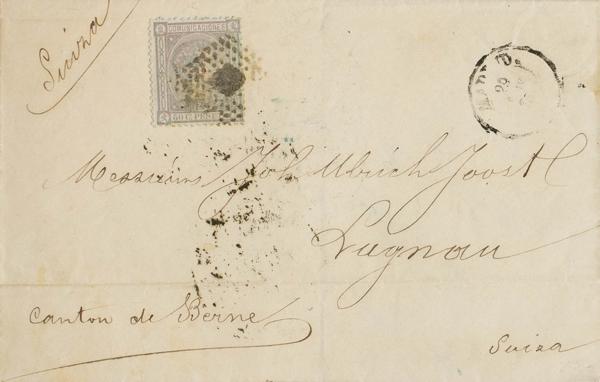 Suiza
COMUNICACIONES
50 C. PESETA
MADRID
29
Messieurs Joh Ulrich Joost
Lugnau
Canton de Berne
Suiza